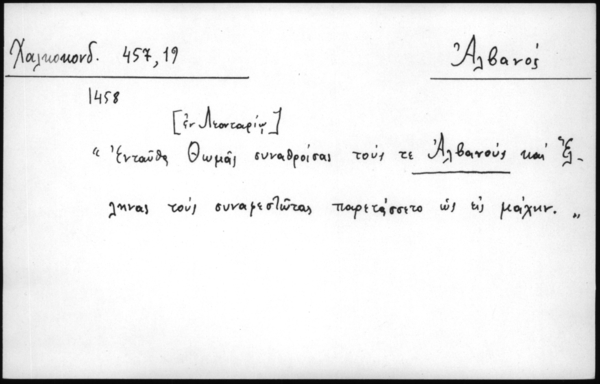 Χαλκοκονδ. 457,19
Ἀλβανός
1458
[ἐν Λεονταρίῳ]
“ Ἐνταῦθα Θωμᾶς συναθροίσας τούς τε Ἀλβανούς καί Ἕλ-
ληνας τούς συναφεστῶτας παρετάσσετο ὡς εἰς μάχην. „